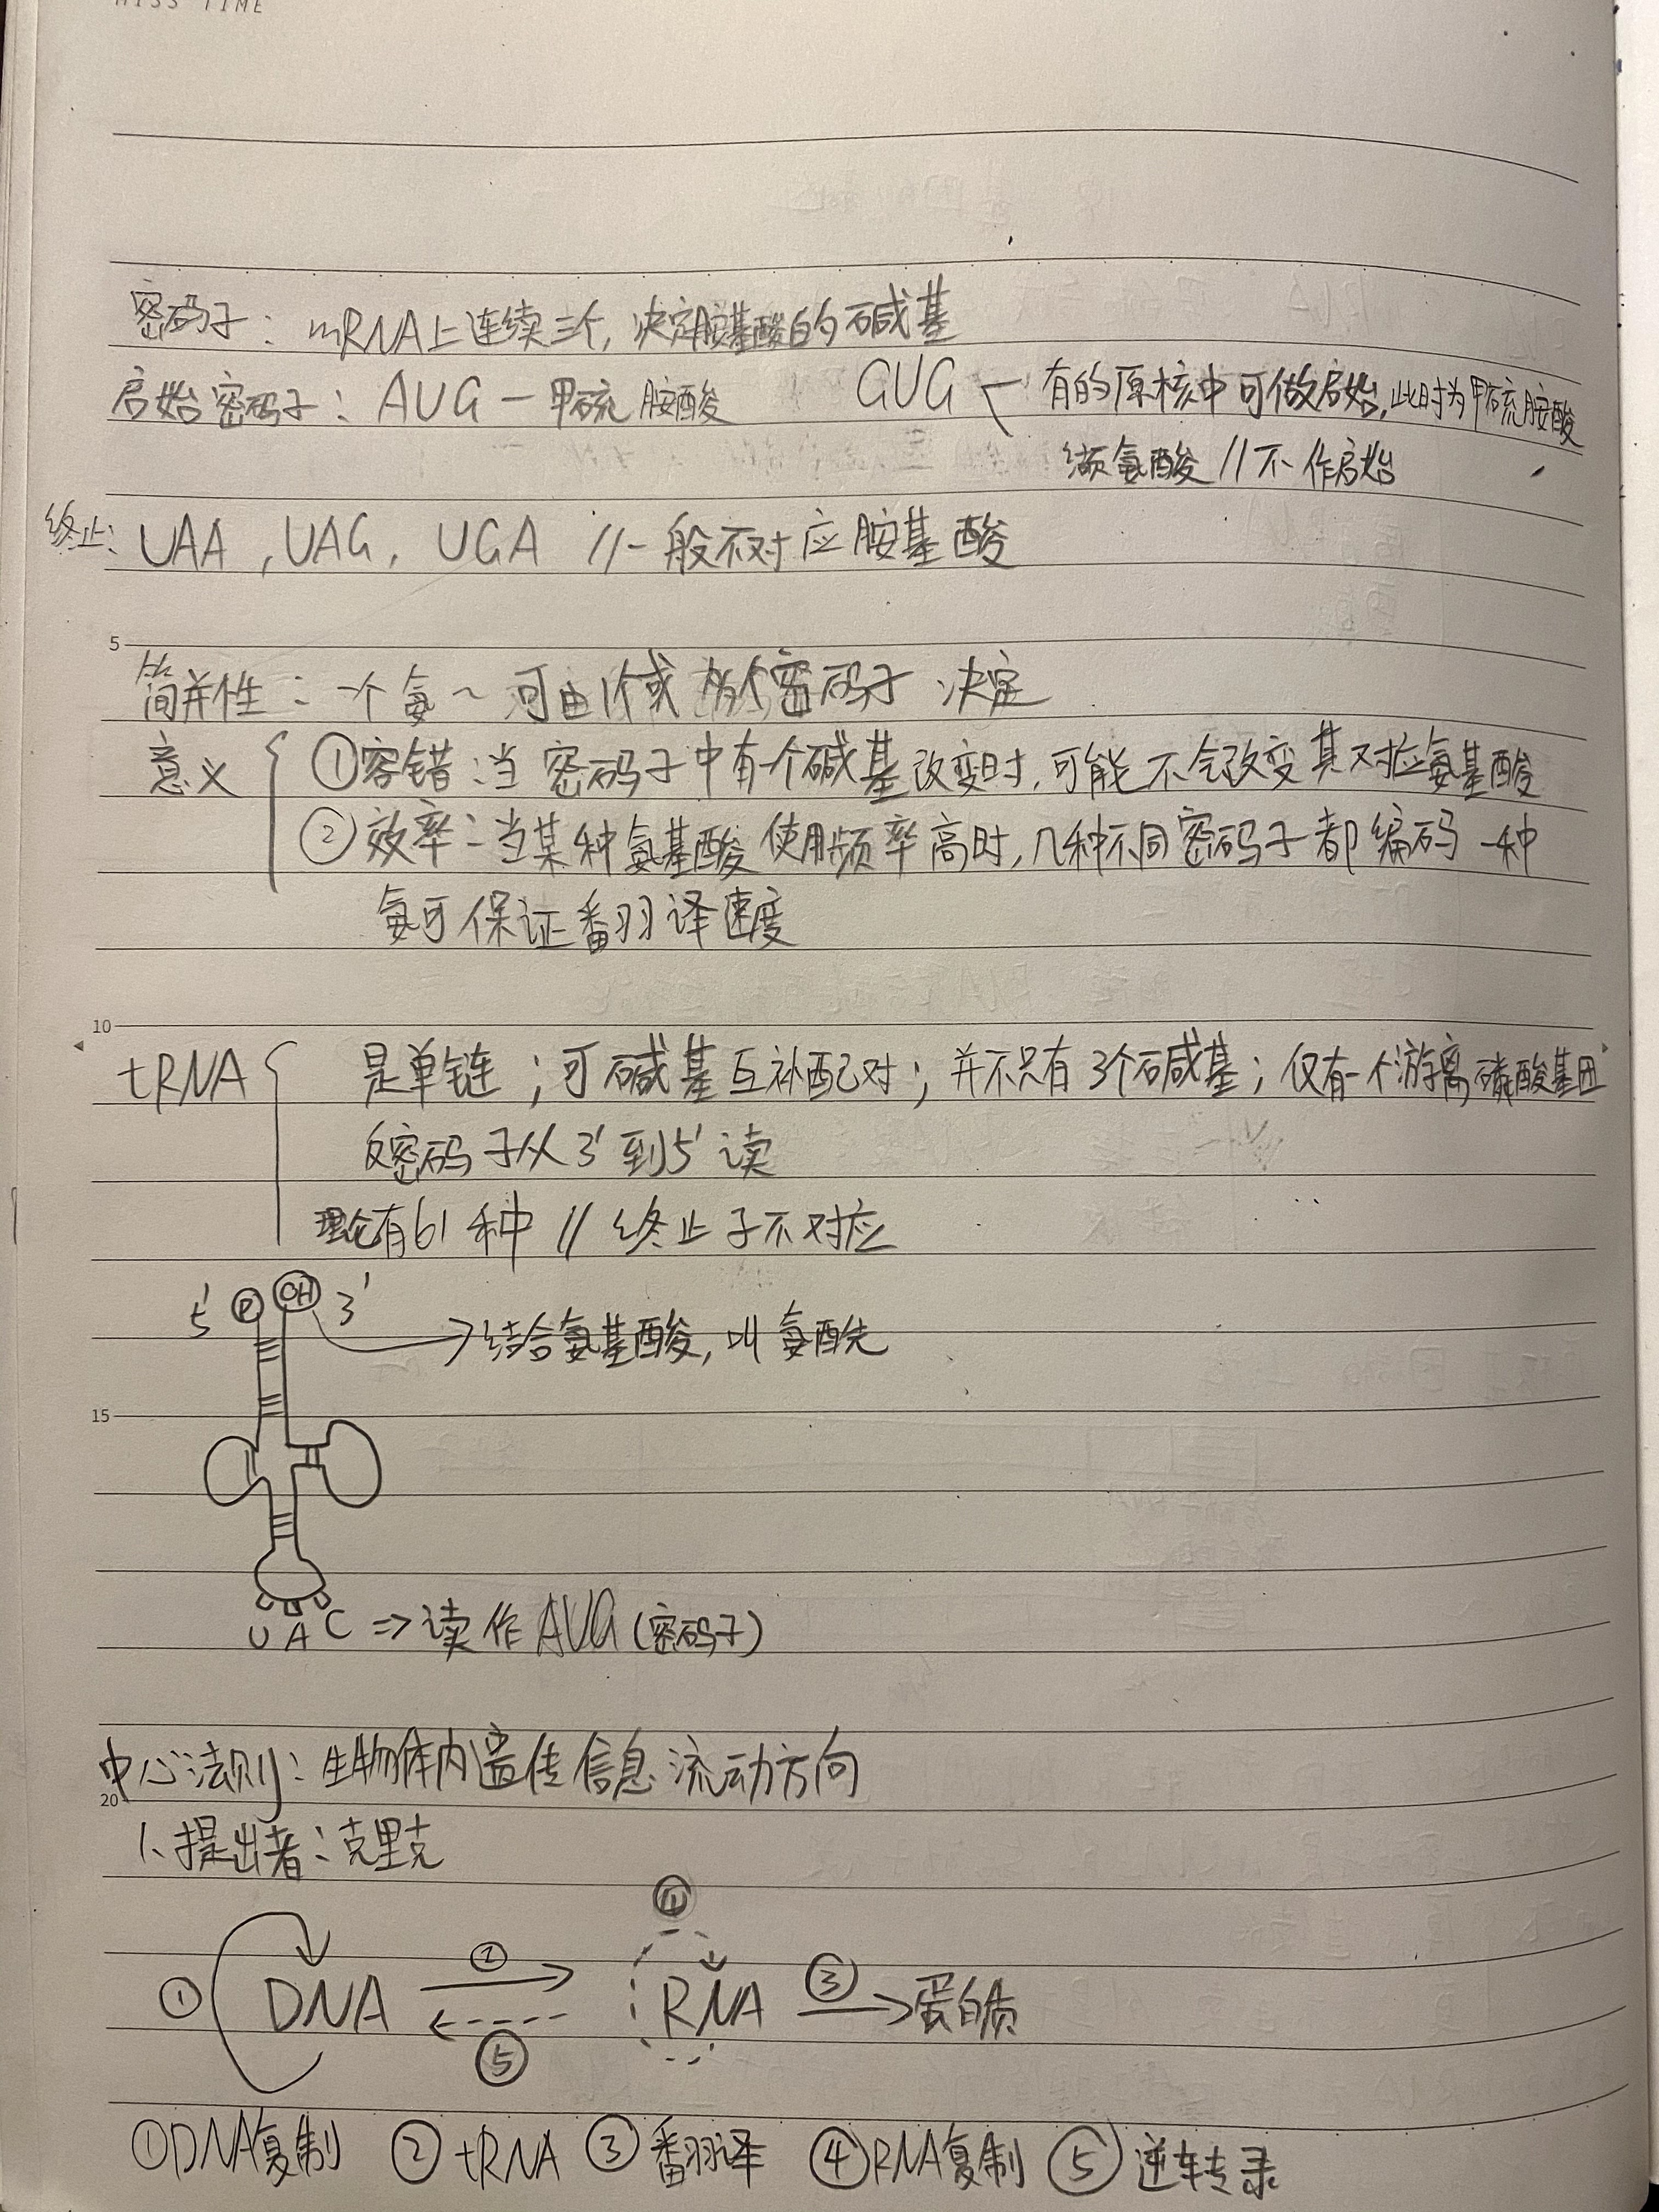 密码子：mRNA上连续三个，决定氨基酸的碱基
启始密码子：AUG - 甲硫胺酸 GUG
有的原核中可做启始，此时为甲硫胺酸
缬氨酸 // 不作启始
终止：UAA，UAG，UGA // 一般不对应胺基酸
5
简并性：一个氨~可由1个或 多个密码子 决定
意义 { ①容错：当密码子中有一个碱基改变时，可能不会改变其对应氨基酸
②效率：当某种氨基酸使用频率高时，几种不同密码子都编码一种
氨可保证翻译速度
10
tRNA { 是单链；可碱基互补配对；并不只有3个碱基；仅有一个游离磷酸基团
反密码子从3'到5'读
理论有61种 // 终止子不对应
5' P OH 3' → 结合氨基酸，
15
U A C ⇒ 读作AUG（密码子）
中心法则：生物体内遗传信息流动方向
20
1、提出者：克里克
① DNA ② ⑤ RNA ④ ③ 蛋白质
①DNA复制 ②tRNA ③翻译 ④RNA复制 ⑤逆转录